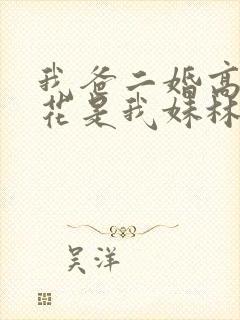 我爸二婚高
花是我妹林
吴洋